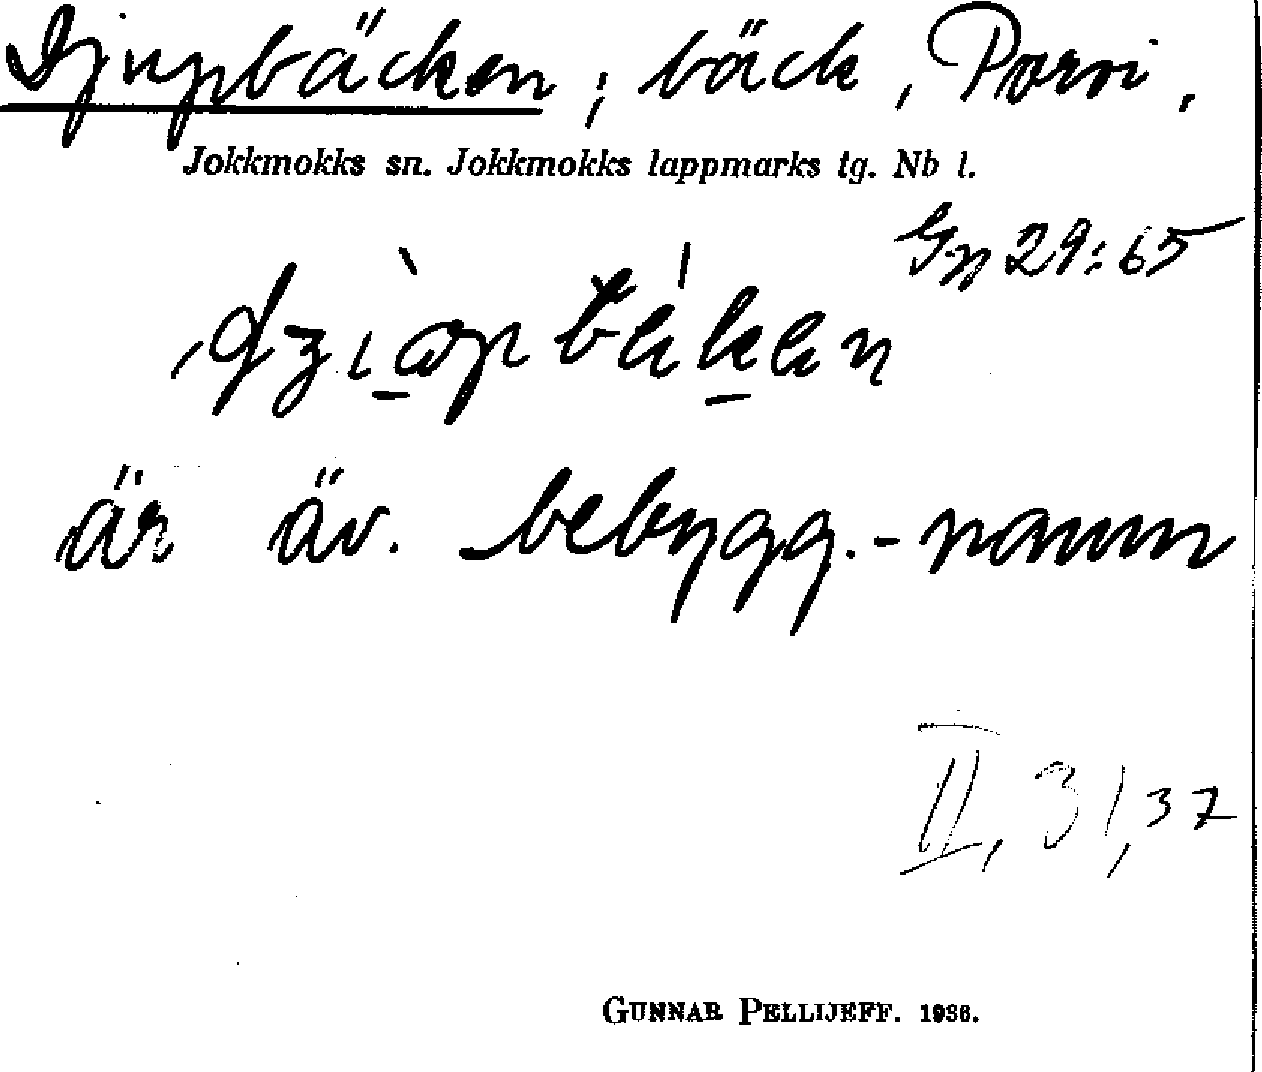 Djupbäcken; bäck, Porsi,
Jokkmokks sn. Jokkmokks lappmarks tg. Nb l.
Gp 29:65
är äv. bebygg.-namn
II, 31, 37
GUNNAR PELLIJEFF. 1936.